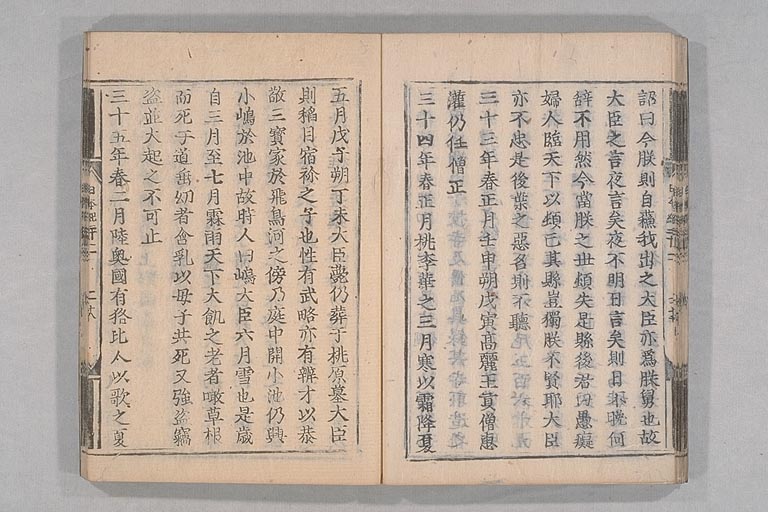 詔曰今朕則自蘓我出之大臣亦爲朕舅也故
大臣之言夜言矣夜不明日言矣則日不晩何
辞不用然今當朕之世頓失是縣後君曰愚癡
婦人臨天下以頓亡其縣豈獨朕不賢耶大臣
亦不忠是後葉之惡名則不聽
三十三年春正月壬申朔戊寅髙麗王貢僧惠
灌仍任僧正
三十四年春正月桃李華之三月寒以霜降夏
五月戊子朔丁未大臣薨仍葬于桃原墓大臣
則稻目宿祢之子也性有武略亦有辨才以恭
敬三寶家於飛鳥河之傍乃庭中開小池仍興
小嶋於池中故時人曰嶋大臣六月雪也是歳
自三月至七月霖雨天下大飢之老者噉草根
而死于道垂幼者含乳以母子共死又強盗竊
盗並大起之不可止
三十五年春二月陸奥國有狢比人以歌之夏